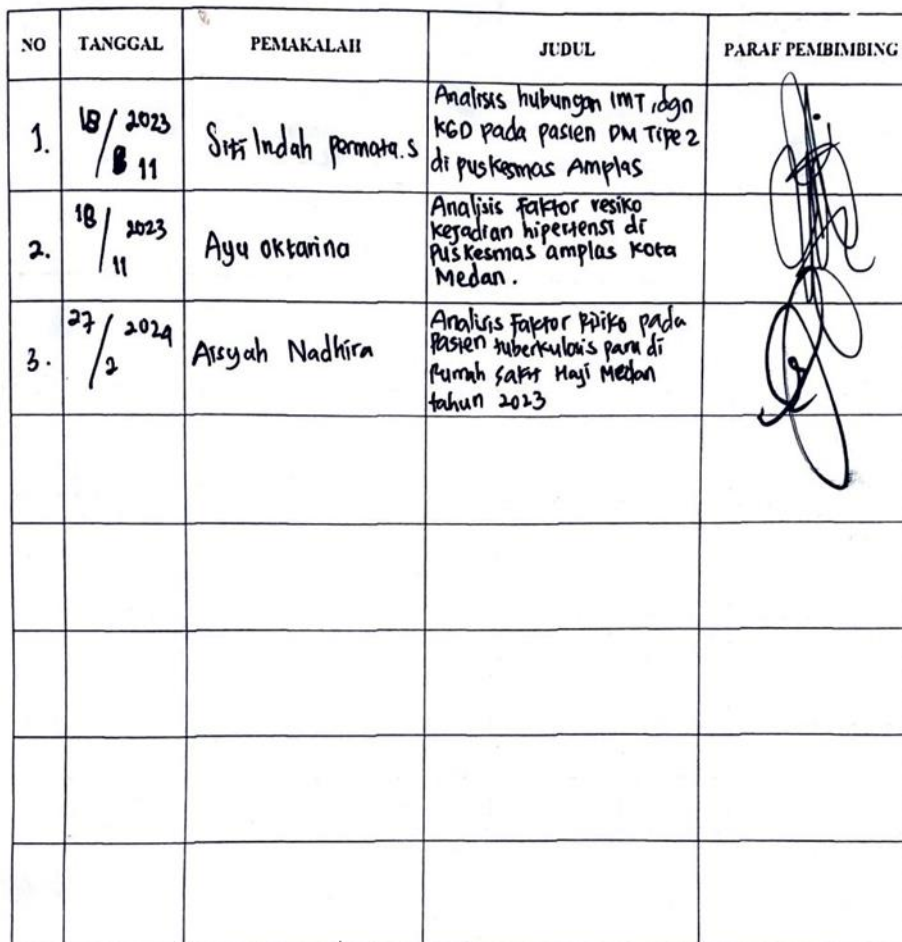 NO TANGGAL PEMAKALAH JUDUL PARAF PEMBIMBING
1.
18/11 2023
Siti Indah permata.s
Analisis hubungan IMT dgn
KGD pada pasien DM Tipe 2
di puskesmas Amplas
2.
18/11 2023
Ayu oktarina
Analisis Faktor resiko
kejadian hipertensi di
Puskesmas amplas Kota
Medan.
3.
27/2 2024
Aisyah Nadhira
Analisis Faktor Risiko pada
Pasien tuberkulosis paru di
Rumah Sakit Haji Medan
tahun 2023